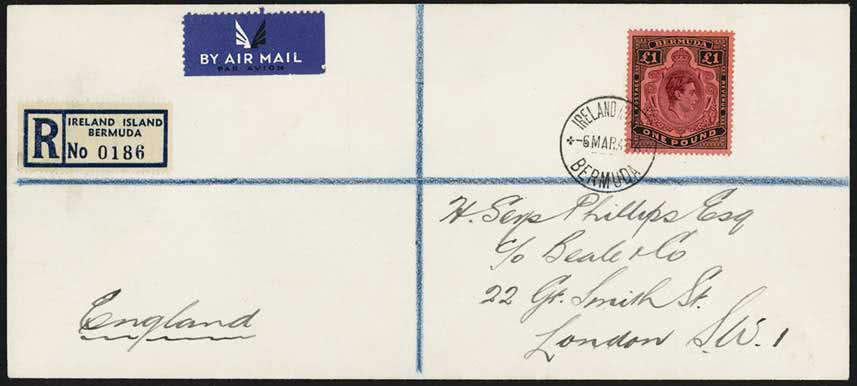 BY AIR MAIL
PAR AVION
BERMUDA
£1 £1
POSTAGE
REVENUE
ONE POUND
R
IRELAND ISLAND
BERMUDA
No 0186
IRELAND
6 MAR
BERMUDA
H. Seys Phillips Esq
c/o Beale & Co
22 Gr. Smith St.
London S.W. 1
England